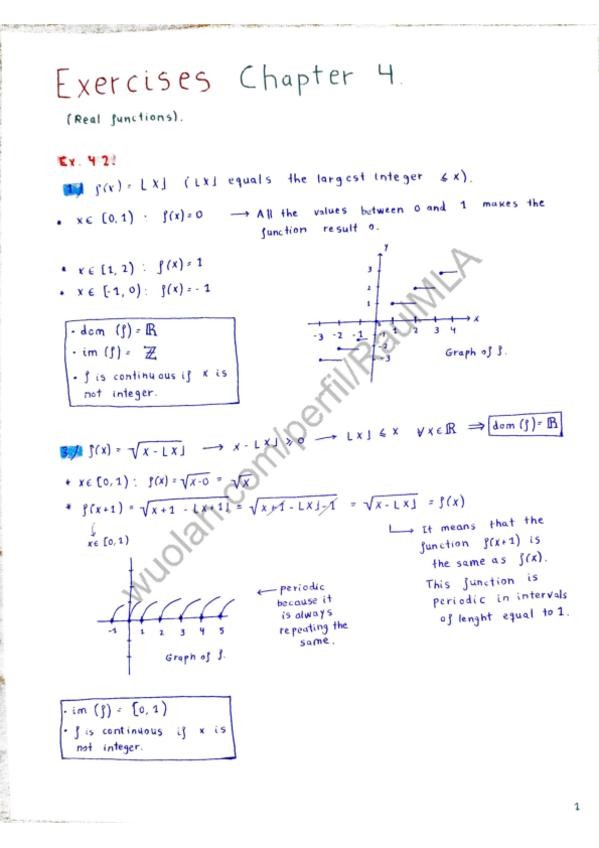 Exercises Chapter 4.
(Real functions).
Ex. 4.2:
1.) f(x) = ⌊x⌋ (⌊x⌋ equals the largest integer ≤ x).
• x∈ [0,1) : f(x)=0 → All the values between 0 and 1 makes the
function result 0.
• x∈ [1,2) : f(x)=1
• x∈ [-1,0): f(x)=-1
y
3
2
1
-3 -2 -1 1 2 3 4 x
-2
-3
Graph of f.
• dom (f) = ℝ
• im (f) = ℤ
• f is continuous if x is
not integer.
3.) f(x) = √(x - ⌊x⌋) → x - ⌊x⌋ ≥ 0 → ⌊x⌋ ≤ x ∀x∈ℝ ⇒ dom (f) = ℝ
• x∈ [0,1) : f(x) = √(x-0) = √x
• f(x+1) = √(x+1 - ⌊x+1⌋) = √(x+1 - ⌊x⌋ - 1) = √(x - ⌊x⌋) = f(x)
x∈ [0,1)
It means that the
function f(x+1) is
the same as f(x).
This function is
periodic in intervals
of lenght equal to 1.
← periodic
because it
is always
repeating the
same.
-1 1 2 3 4 5
Graph of f.
• im (f) = [0,1)
• f is continuous if x is
not integer.
wuolah.com/perfil/RaulMLA
1